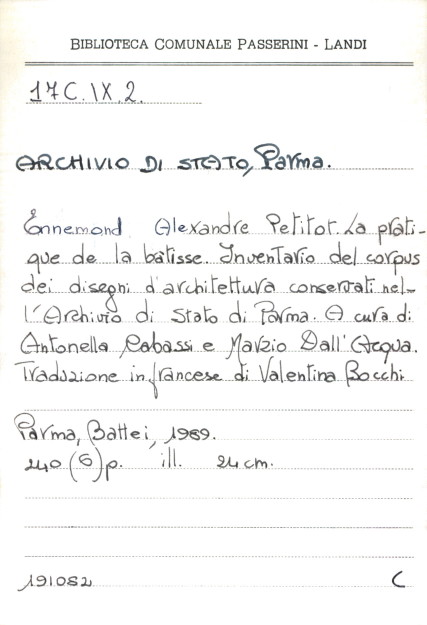 BIBLIOTECA COMUNALE PASSERINI - LANDI
17C.IX.2.
ARCHIVIO DI STATO, Parma.
Ennemond Alexandre Petitot. La prati-
que de la bâtisse. Inventario del corpus
dei disegni d'architettura conservati nel-
l'Archivio di Stato di Parma. A cura di
Antonella Barbassi e Marzio Dall'Acqua.
Traduzione in francese di Valentina Bocchi
Parma, Battei, 1989.
240 (6) p. ill. 24 cm.
191082 C